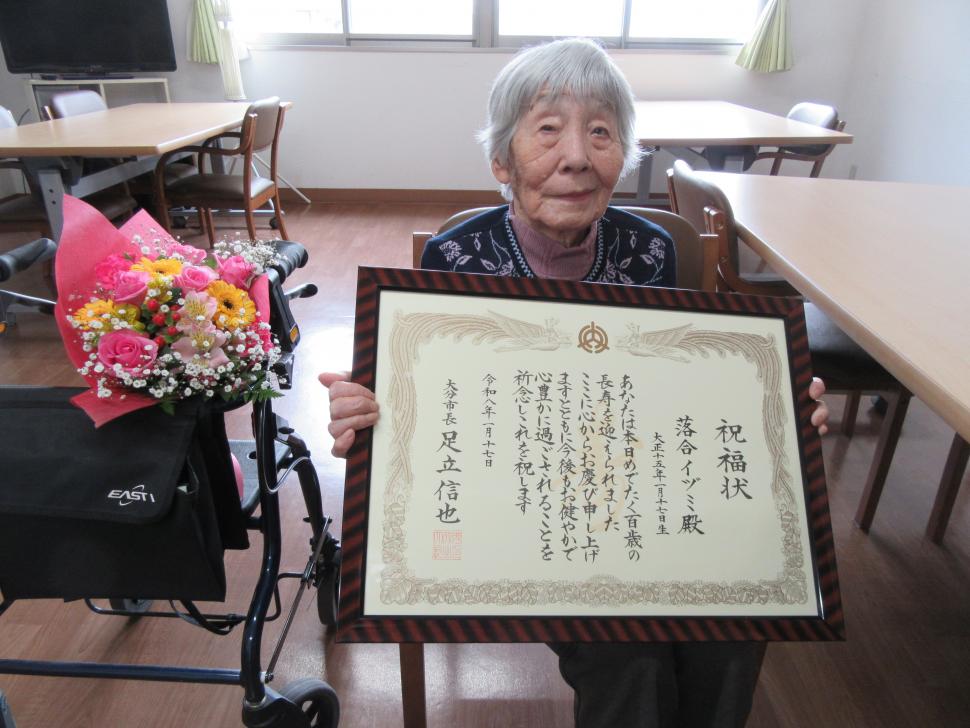 祝福状
落合イヅミ殿
大正十五年一月十七日生
あなたは本日めでたく百歳の
長寿を迎えられました
ここに心からお慶び申し上げ
ますとともに今後もお健やかで
心豊かに過ごされることを
祈念しこれを祝します
令和八年一月十七日
大分市長 足立信也
EASTI